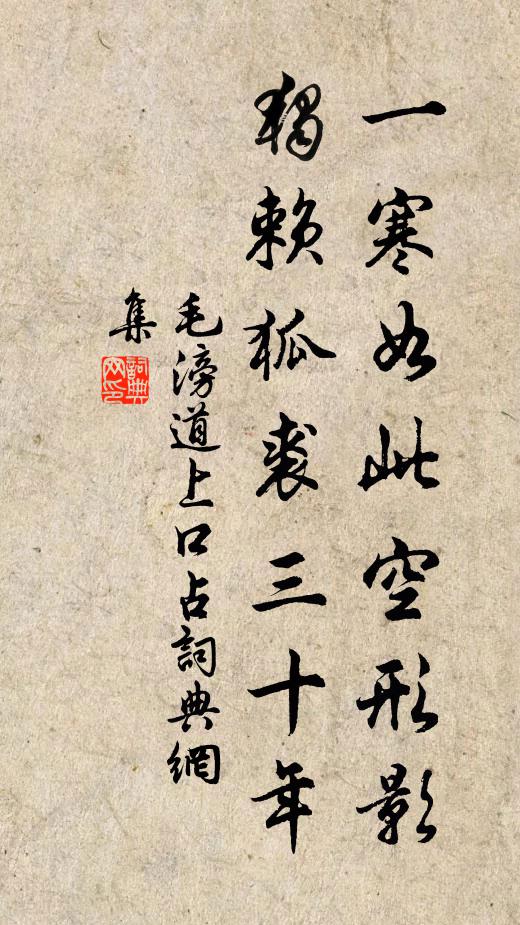 一寒如此空形影
獨賴狐裘三十年
毛滂道上口占詞典網
集
詞典網印